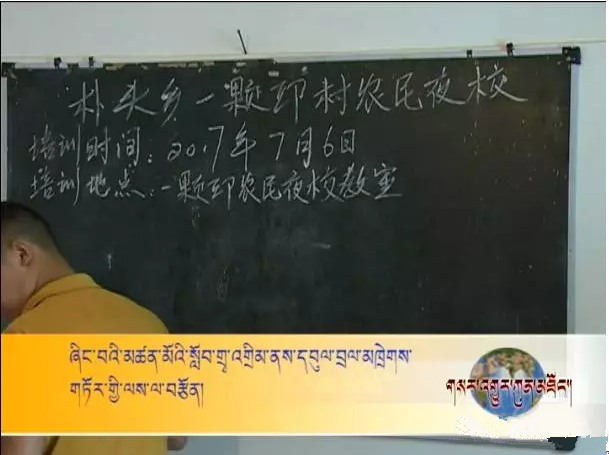 朴头乡一颗印村农民夜校
培训时间：2017年7月6日
培训地点：一颗印农民夜校教室
ཞིང་བའི་མཚན་མོའི་སློབ་གྲྭ་འགྲིམ་ནས་དབུལ་བྲལ་མཁྲེགས་
གཏོར་གྱི་ལས་ལ་བརྩོན།
གསར་འགྱུར་ཀུན་མཐོང་།